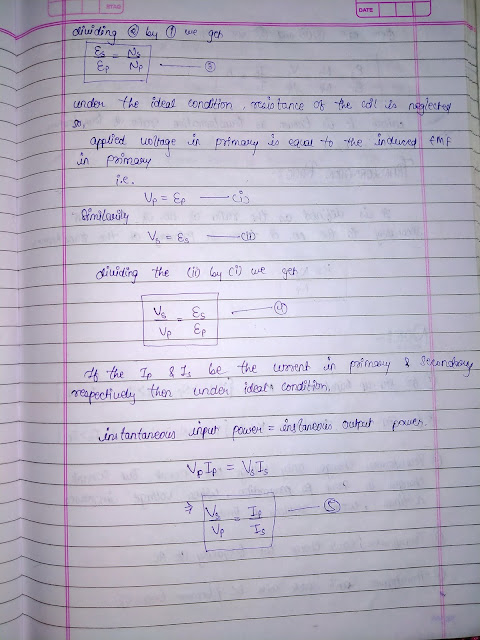 DATE
dividing ② by ① we get
Es/Ep = Ns/Np —— ③
under the ideal condition, resistance of the coil is neglected
so,
applied voltage in primary is equal to the induced EMF
in primary
i.e.
Vp = Ep —— (i)
Similarly
Vs = Es —— (ii)
dividing the (ii) by (i) we get
Vs/Vp = Es/Ep —— ④
If the Ip & Is be the current in primary & secondary
respectively then under ideal condition,
instantaneous input power = instaneous output power.
VpIp = VsIs
⇒ Vs/Vp = Ip/Is —— ⑤